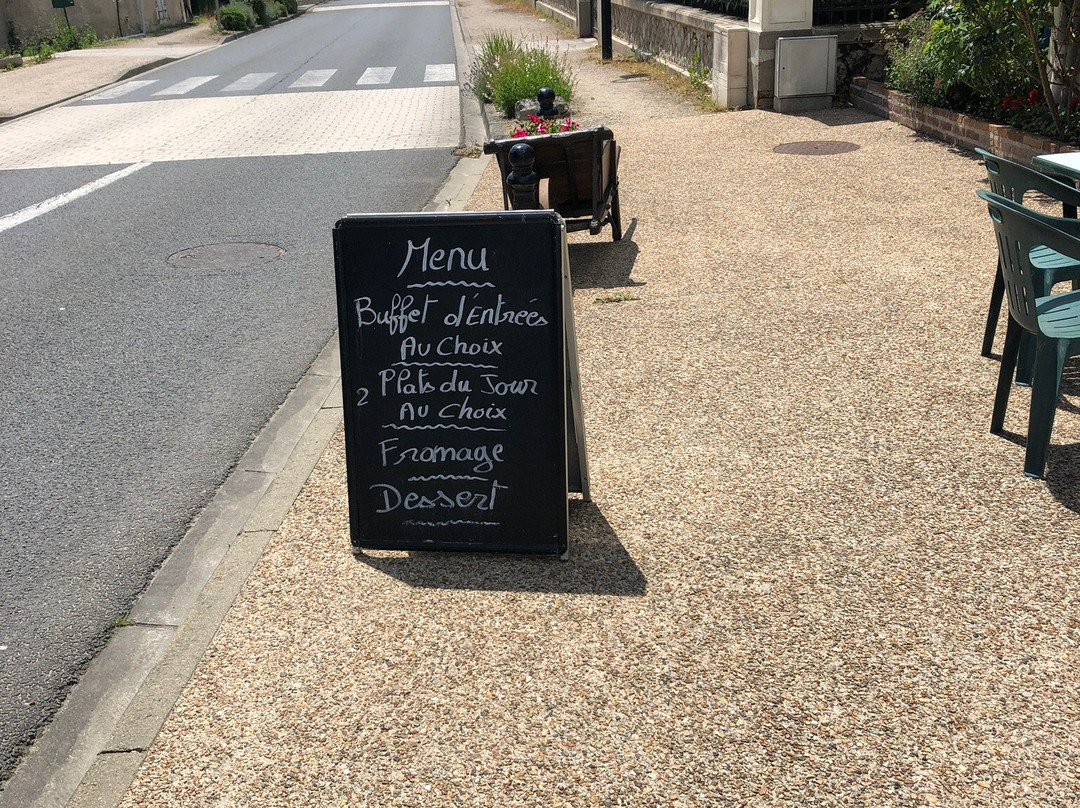 Menu
Buffet d'Éntrées
Au Choix
2 Plats du Jour
Au Choix
Fromage
Dessert